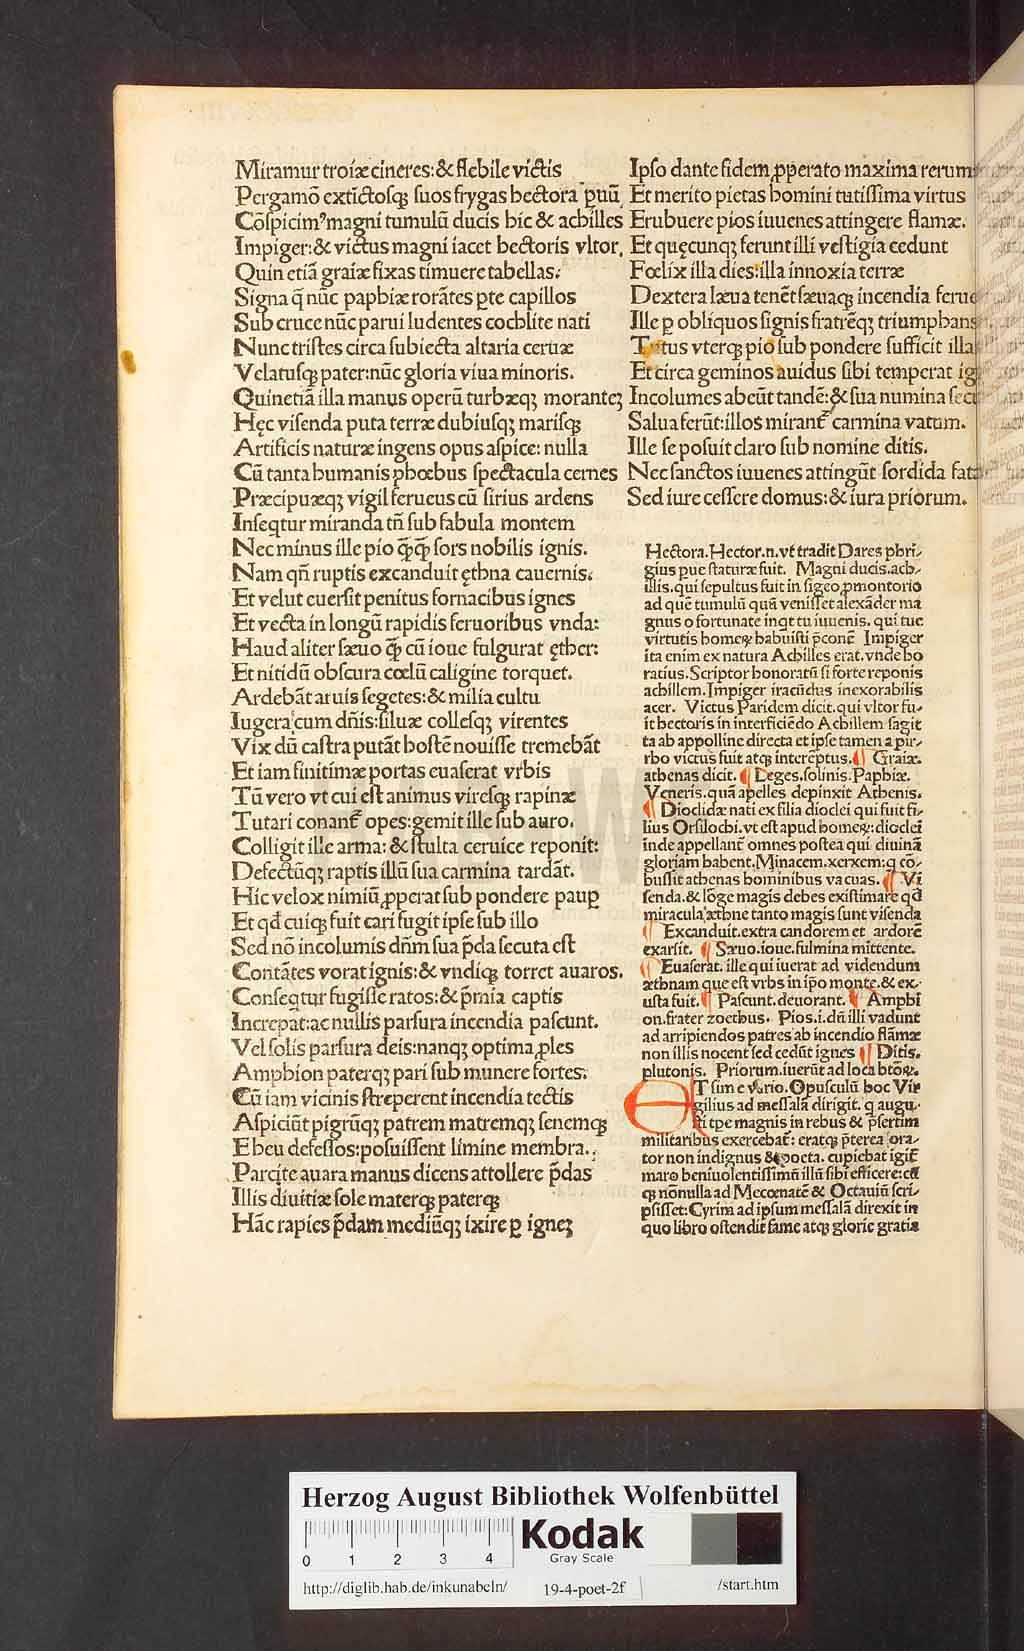 Miramur troiæ cineres: & flebile victis
Pergamō extīctosq; suos frygas hectora puū.
Cōspicimꝰ magni tumulū ducis hic & achilles
Impiger: & victus magni iacet hectoris vltor.
Quin etiā graiæ fixas timuere tabellas.
Signa q̄ nūc paphiæ rorātes p̱te capillos
Sub cruce nūc parui ludentes cochlite nati
Nunc tristes circa subiecta altaria ceruæ
Velatusq; pater: nūc gloria viua minoris.
Quinetiā illa manus operū turbæq; morantez
Hęc visenda puta terræ dubiusq; marisq;
Artificis naturæ ingens opus aspice: nulla
Cū tanta humanis phœbus spectacula cernes
Præcipuæq; vigil ferueus cū sirius ardens
Inseqtur miranda tn̄ sub fabula montem
Nec minus ille pio q̄q̄ sors nobilis ignis.
Nam qn̄ ruptis excanduit ęthna cauernis.
Et velut euersit penitus fornacibus ignes
Et vecta in longū rapidis feruoribus vnda:
Haud aliter sæuo q̄ cū ioue fulgurat ęther:
Et nitidū obscura cœlū caligine torquet.
Ardebāt aruis segetes: & milia cultu
Iugera: cum dn̄is: siluæ collesq; virentes
Vix dū castra putāt hostē nouisse tremebāt
Et iam finitimæ portas euaserat vrbis
Tū vero vt cui est animus viresq; rapinæ
Tutari conant᷑ opes: gemit ille sub auro.
Colligit ille arma: & stulta ceruice reponit:
Defectūq; raptis illū sua carmina tardāt.
Hic velox nimiū ꝓperat sub pondere paup̱
Et qđ cuiq; fuit cari fugit ipse sub illo
Sed nō incolumis dn̄m sua p̄da secuta est
Contātes vorat ignis: & vndiq; torret auaros.
Conseqtur fugisse ratos: & p̄mia captis
Increpāt: ac nullis parsura incendia pascunt.
Vel solis parsura deis: nanq; optima ꝓles
Amphion paterq; pari sub munere fortes.
Cū iam vicinis streperent incendia tectis
Aspiciūt pigrūq; patrem matremq; senemq;
Eheu defessos: posuissent limine membra.
Parcite auara manus dicens attollere p̄das
Illis diuitiæ sole materq; paterq;
Hāc rapies p̄dam mediūq; ixire p̱ ignez
Ipso dante fidem ꝓperato maxima rerum
Et merito pietas homini tutissima virtus
Erubuere pios iuuenes attingere flamæ.
Et quęcunq; ferunt illi vestigia cedunt
Fœlix illa dies: illa innoxia terræ
Dextera læua tenēt sæuaq; incendia ferue
Ille p̱ obliquos signis fratrēq; triumphans
Tutus vterq; pio sub pondere sufficit illa
Et circa geminos auidus sibi temperat ig
Incolumes abeūt tandē: & sua numina secu
Salua ferūt: illos mirant᷑ carmina vatum.
Ille se posuit claro sub nomine ditis.
Nec sanctos iuuenes attingūt sordida fata
Sed iure cessere domus: & iura priorum.
Hectora. Hector. n. vt tradit Dares phri-
gius pue staturæ fuit. Magni ducis. ach-
illis. qui sepultus fuit in sigeo ꝓmontorio
ad quē tumulū quā venisset alexāder ma
gnus o fortunate inqt tu iuuenis. qui tue
virtutis homeꝝ habuisti p̄conē Impiger
ita enim ex natura Achilles erat. vnde ho
ratius. Scriptor honoratū si forte reponis
achillem. Impiger iracūdus inexorabilis
acer. Victus Paridem dicit. qui vltor fu-
it hectoris in interficiēdo Achillem sagit
ta ab appolline directa et ipse tamen a pir-
rho victus fuit atq; interēptus. ¶ Graiæ.
athenas dicit. ¶ Leges. solinis. Paphiæ.
Veneris. quā apelles depinxit Athenis.
¶ Dioclidæ nati ex filia dioclei qui fuit fi-
lius Orsilochi. vt est apud homeꝝ: dioclei
inde appellant᷑ omnes postea qui diuinā
gloriam habent. Minacem. xerxem: q cō-
bussit athenas hominibus vacuas. ¶ Vi
senda. & lōge magis debes existimare qđ
miracula æthne tanto magis sunt visenda
¶ Excanduit. extra candorem et ardorē
exarsit. ¶ Sæuo. ioue. fulmina mittente.
¶ Euaserat. ille qui iuerat ad videndum
æthnam que est vrbs in ipso monte. & ex-
usta fuit. ¶ Pascunt. deuorant. ¶ Amphi
on. frater zoethus. Pios. i. dū illi vadunt
ad arripiendos patres ab incendio flāmæ
non illis nocent sed cedūt ignes ¶ Ditis.
plutonis. Priorum. iuerūt ad loca btōꝝ.
ET sim e vario. Opusculū hoc Vir
gilius ad messalā dirigit. q augu-
sti tpe magnis in rebus & p̄sertim
militaribus exercebat᷑: eratq; p̄terea ora-
tor non indignus & poeta. cupiebat igit᷑
maro beniuolentissimū illū sibi efficere: cū
q; nonulla ad Mecœnatē & Octauiū scri-
psisset: Cyrim ad ipsum messalā direxit in
quo libro ostendit fame atq; glorie gratia
HAB W
Herzog August Bibliothek Wolfenbüttel
0 1 2 3 4
Kodak
Gray Scale
http://diglib.hab.de/inkunabeln/ 19-4-poet-2f /start.htm